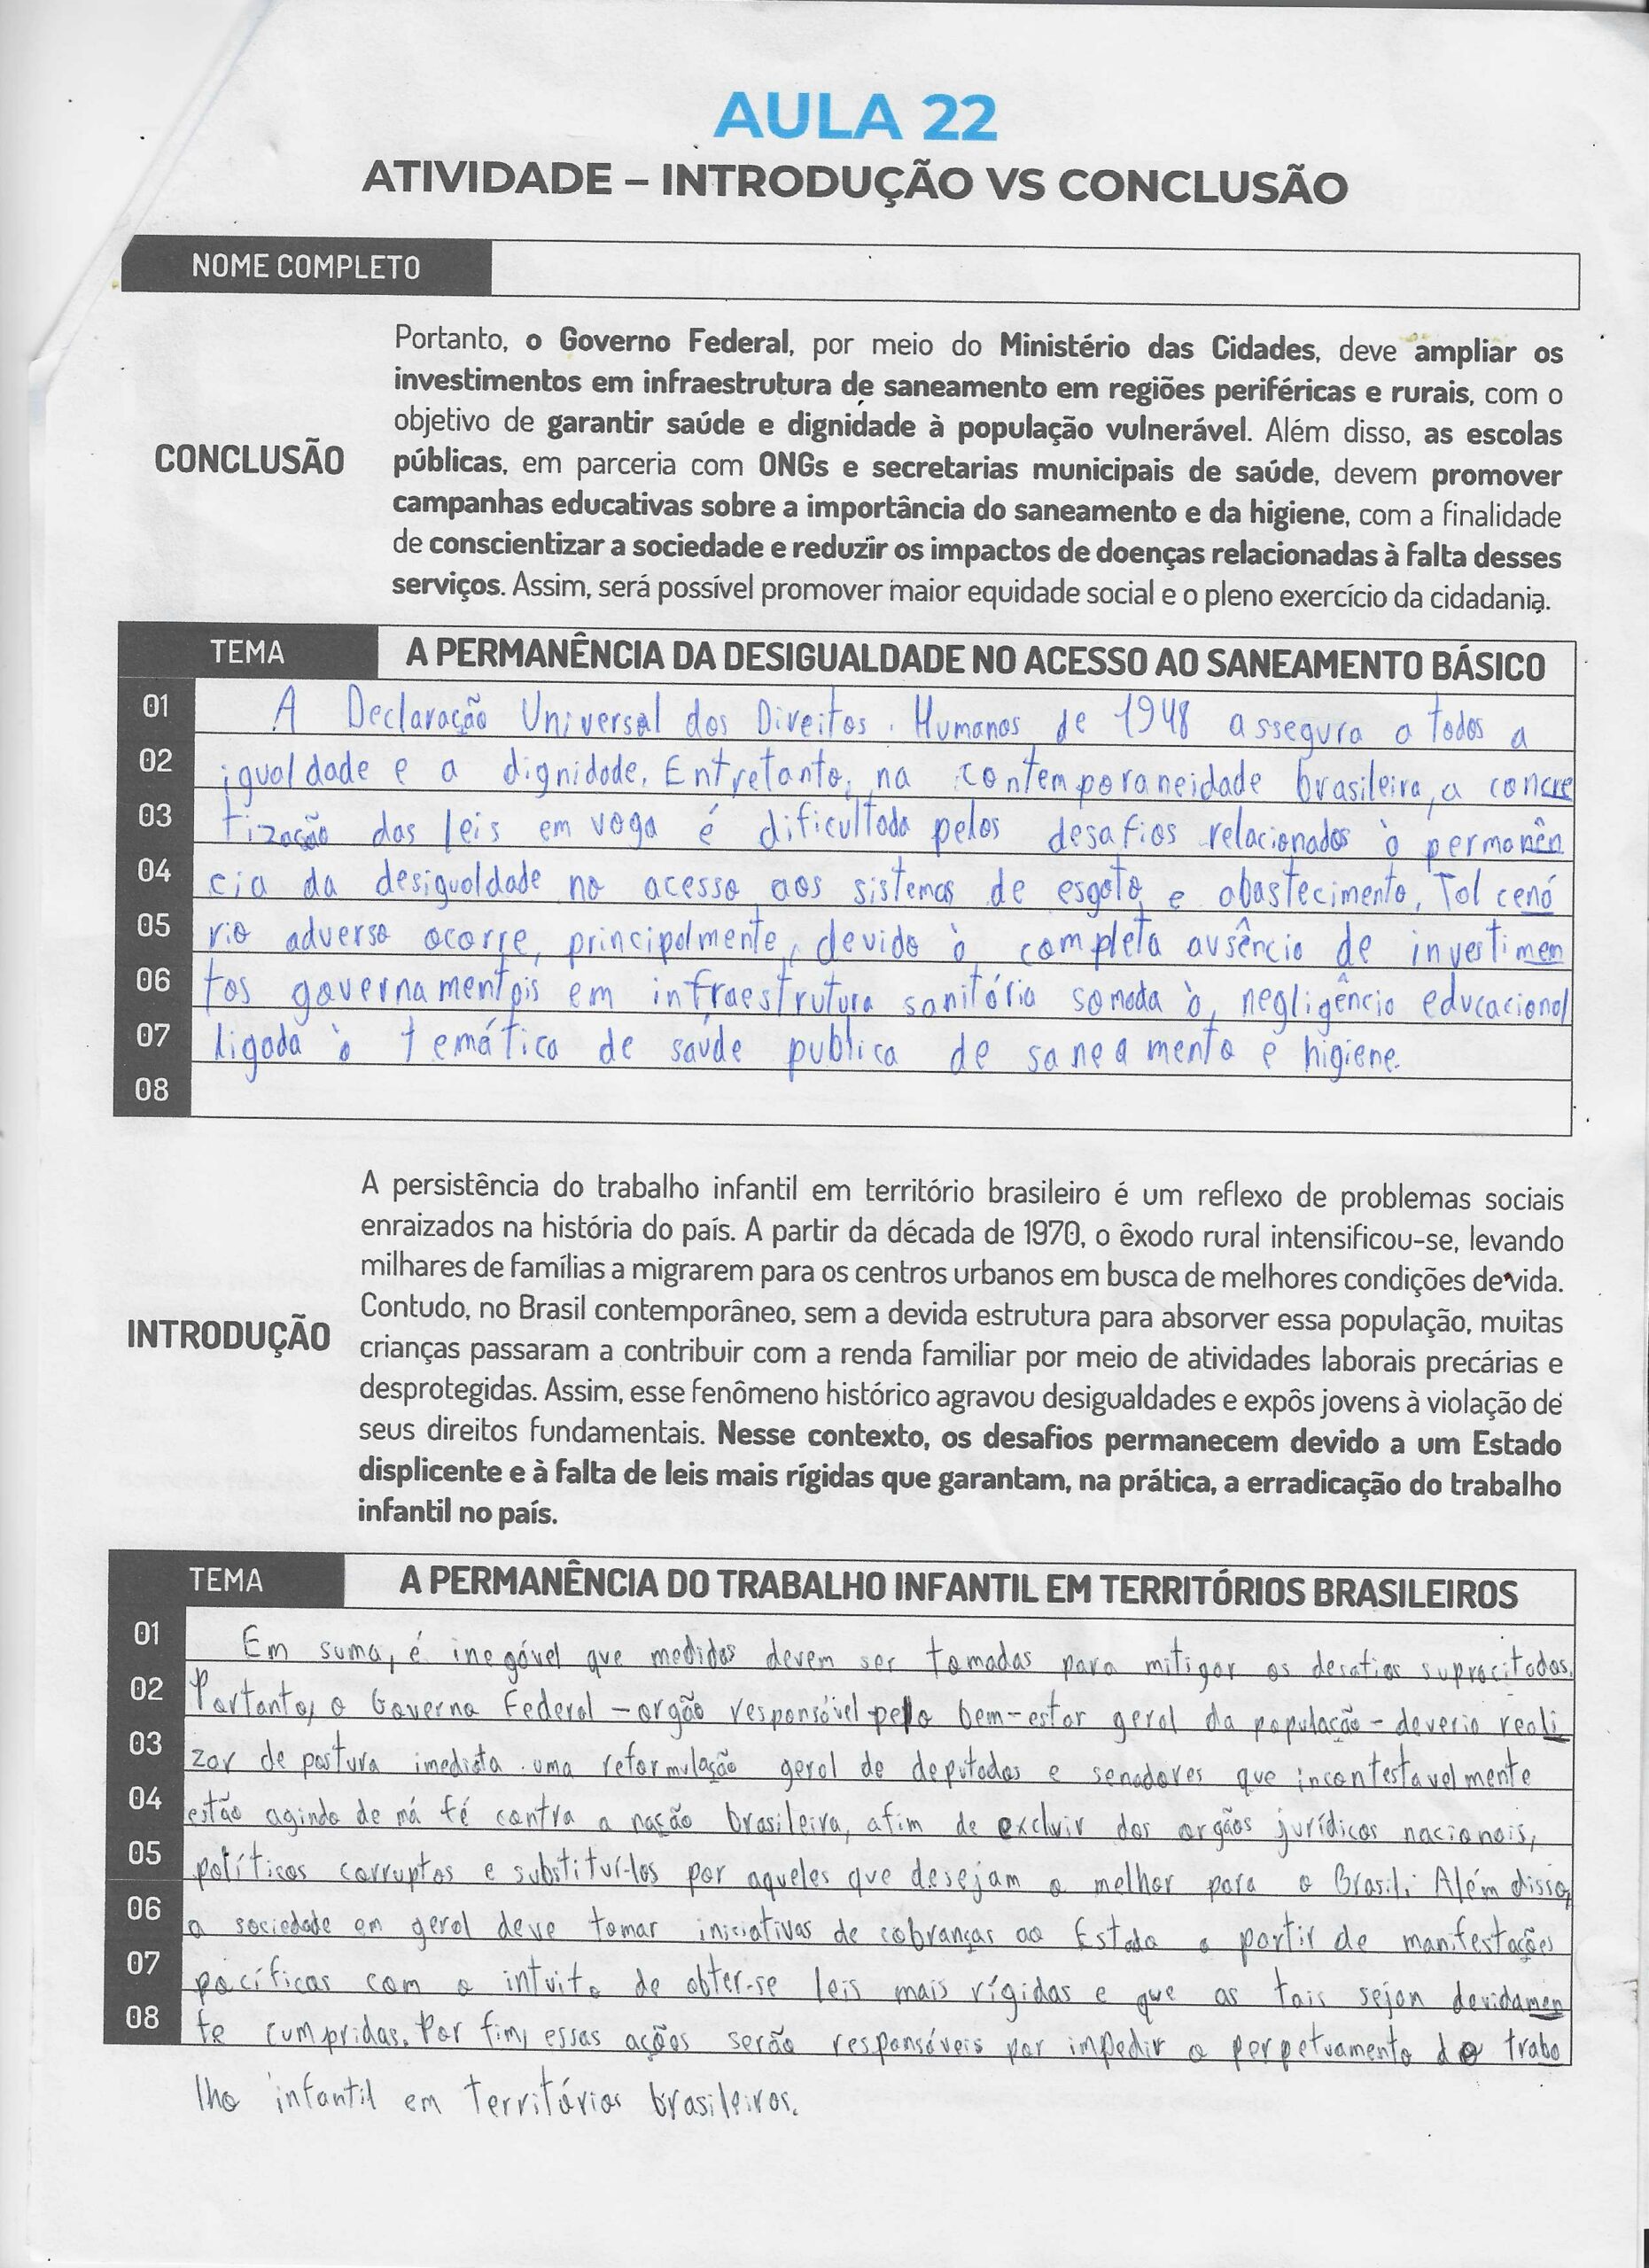 AULA 22
ATIVIDADE – INTRODUÇÃO VS CONCLUSÃO
NOME COMPLETO
CONCLUSÃO
Portanto, o Governo Federal, por meio do Ministério das Cidades, deve ampliar os
investimentos em infraestrutura de saneamento em regiões periféricas e rurais, com o
objetivo de garantir saúde e dignidade à população vulnerável. Além disso, as escolas
públicas, em parceria com ONGs e secretarias municipais de saúde, devem promover
campanhas educativas sobre a importância do saneamento e da higiene, com a finalidade
de conscientizar a sociedade e reduzir os impactos de doenças relacionadas à falta desses
serviços. Assim, será possível promover maior equidade social e o pleno exercício da cidadania.
TEMA A PERMANÊNCIA DA DESIGUALDADE NO ACESSO AO SANEAMENTO BÁSICO
01 A Declaração Universal dos Direitos Humanos de 1948 assegura a todos a
02 igualdade e a dignidade. Entretanto, na contemporaneidade brasileira, a concre
03 tização das leis em voga é dificultada pelos desafios relacionados à permanên
04 cia da desigualdade no acesso aos sistemas de esgoto e abastecimento, Tal cená
05 rio adverso ocorre, principalmente, devido à completa ausência de investimen
06 tos governamentais em infraestrutura sanitária somada à negligência educacional
07 ligada à temática de saúde publica de saneamento e higiene.
08
INTRODUÇÃO
A persistência do trabalho infantil em território brasileiro é um reflexo de problemas sociais
enraizados na história do país. A partir da década de 1970, o êxodo rural intensificou-se, levando
milhares de famílias a migrarem para os centros urbanos em busca de melhores condições de vida.
Contudo, no Brasil contemporâneo, sem a devida estrutura para absorver essa população, muitas
crianças passaram a contribuir com a renda familiar por meio de atividades laborais precárias e
desprotegidas. Assim, esse fenômeno histórico agravou desigualdades e expôs jovens à violação de
seus direitos fundamentais. Nesse contexto, os desafios permanecem devido a um Estado
displicente e à falta de leis mais rígidas que garantam, na prática, a erradicação do trabalho
infantil no país.
TEMA A PERMANÊNCIA DO TRABALHO INFANTIL EM TERRITÓRIOS BRASILEIROS
01 Em suma, é inegável que medidas devem ser tomadas para mitigar os desafios supracitados.
02 Portanto, o Governo Federal – orgão responsável pelo bem-estar geral da população – deveria reali
03 zar de postura imediata uma reformulação geral de deputados e senadores que incontestavelmente
04 estão agindo de má fé contra a nação brasileira, afim de excluir dos orgãos jurídicos nacionais,
05 políticos corruptos e substituí-los por aqueles que desejam o melhor para o Brasil. Além disso,
06 a sociedade em geral deve tomar iniciativas de cobranças ao Estado a partir de manifestações
07 pacíficas com o intuito de obter-se leis mais rígidas e que as tais sejam devidamen
08 te cumpridas. Por fim, essas ações serão responsáveis por impedir o perpetuamento do traba
lho infantil em territórios brasileiros.